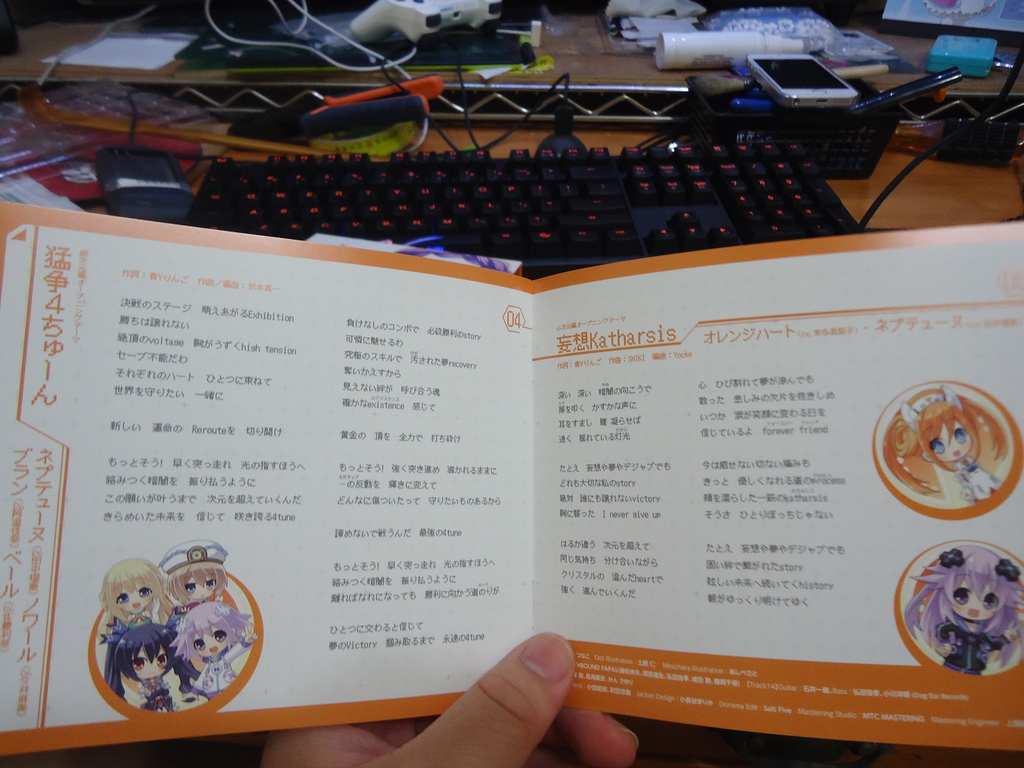 猛争4ちゅーん
ネプテューヌ
ノワール
ブラン
ベール
作詞：青Yりんご 作曲／編曲：
決戦のステージ 萌えあがるExhibition
勝ちは譲れない
絶頂のvoltage 胸がうずくhigh tension
セーブ不能だわ
それぞれのハート ひとつに束ねて
世界を守りたい 一緒に
新しい 運命の Rerouteを 切り開け
もっとそう! 早く突っ走れ 光の指すほうへ
絡みつく暗闇を 振り払うように
この願いが叶うまで 次元を超えていくんだ
きらめいた未来を 信じて 咲き誇る4tune
04
負けなしのコンボで 必殺勝利のstory
可憐に魅せるわ
究極のスキルで 汚された夢recovery
奪いかえすから
見えない絆が 呼び合う魂
確かなexistence 感じて
黄金の 頂を 全力で 打ち砕け
もっとそう! 強く突き進め 導かれるままに
一の反動を 輝きに変えて
どんなに傷ついたって 守りたいものあるから
諦めないで戦うんだ 最強の4tune
もっとそう! 早く突っ走れ 光の指すほうへ
絡みつく暗闇を 振り払うように
離ればなれになっても 勝利に向かう道のりが
ひとつに交わると信じて
夢のVictory 掴み取るまで 永遠の4tune
心次元編オープニングテーマ
妄想Katharsis
オレンジハート・ネプテューヌ
作詞：青Yりんご 作曲：SHIKI 編曲：Yocke
深い 深い 暗闇の向こうで
扉を叩く かすかな声に
耳をすまし 瞳 凝らせば
遠く 揺れている灯光
たとえ 妄想や夢やデジャブでも
どれも大切な私のstory
絶対 誰にも譲れないvictory
胸に誓った I never give up
はるか違う 次元を超えて
同じ気持ち 分け合いながら
クリスタルの 澄んだheartで
強く 進んでいくんだ
心 ひび割れて夢が滲んでも
散った 悲しみの欠片を抱きしめ
いつか 涙が笑顔に変わる日を
信じているよ forever friend
今は癒せない切ない痛みも
きっと 優しくなれる道のprocess
頬を濡らした一筋のkatharsis
そうさ ひとりぼっちじゃない
たとえ 妄想や夢やデジャブでも
固い絆で繋がれたstory
眩しい未来へ続いてくhistory
朝がゆっくり明けてゆく
つなこ Dot Illustration：土居 仁 Minichara Illustration：あしべさと
【Track14】Guitar：石井一雄, Bass：
Jacket Design：小長谷まりか Dorama Edit：Salt Five Mastering Studio：MTC MASTERING Mastering Engineer：